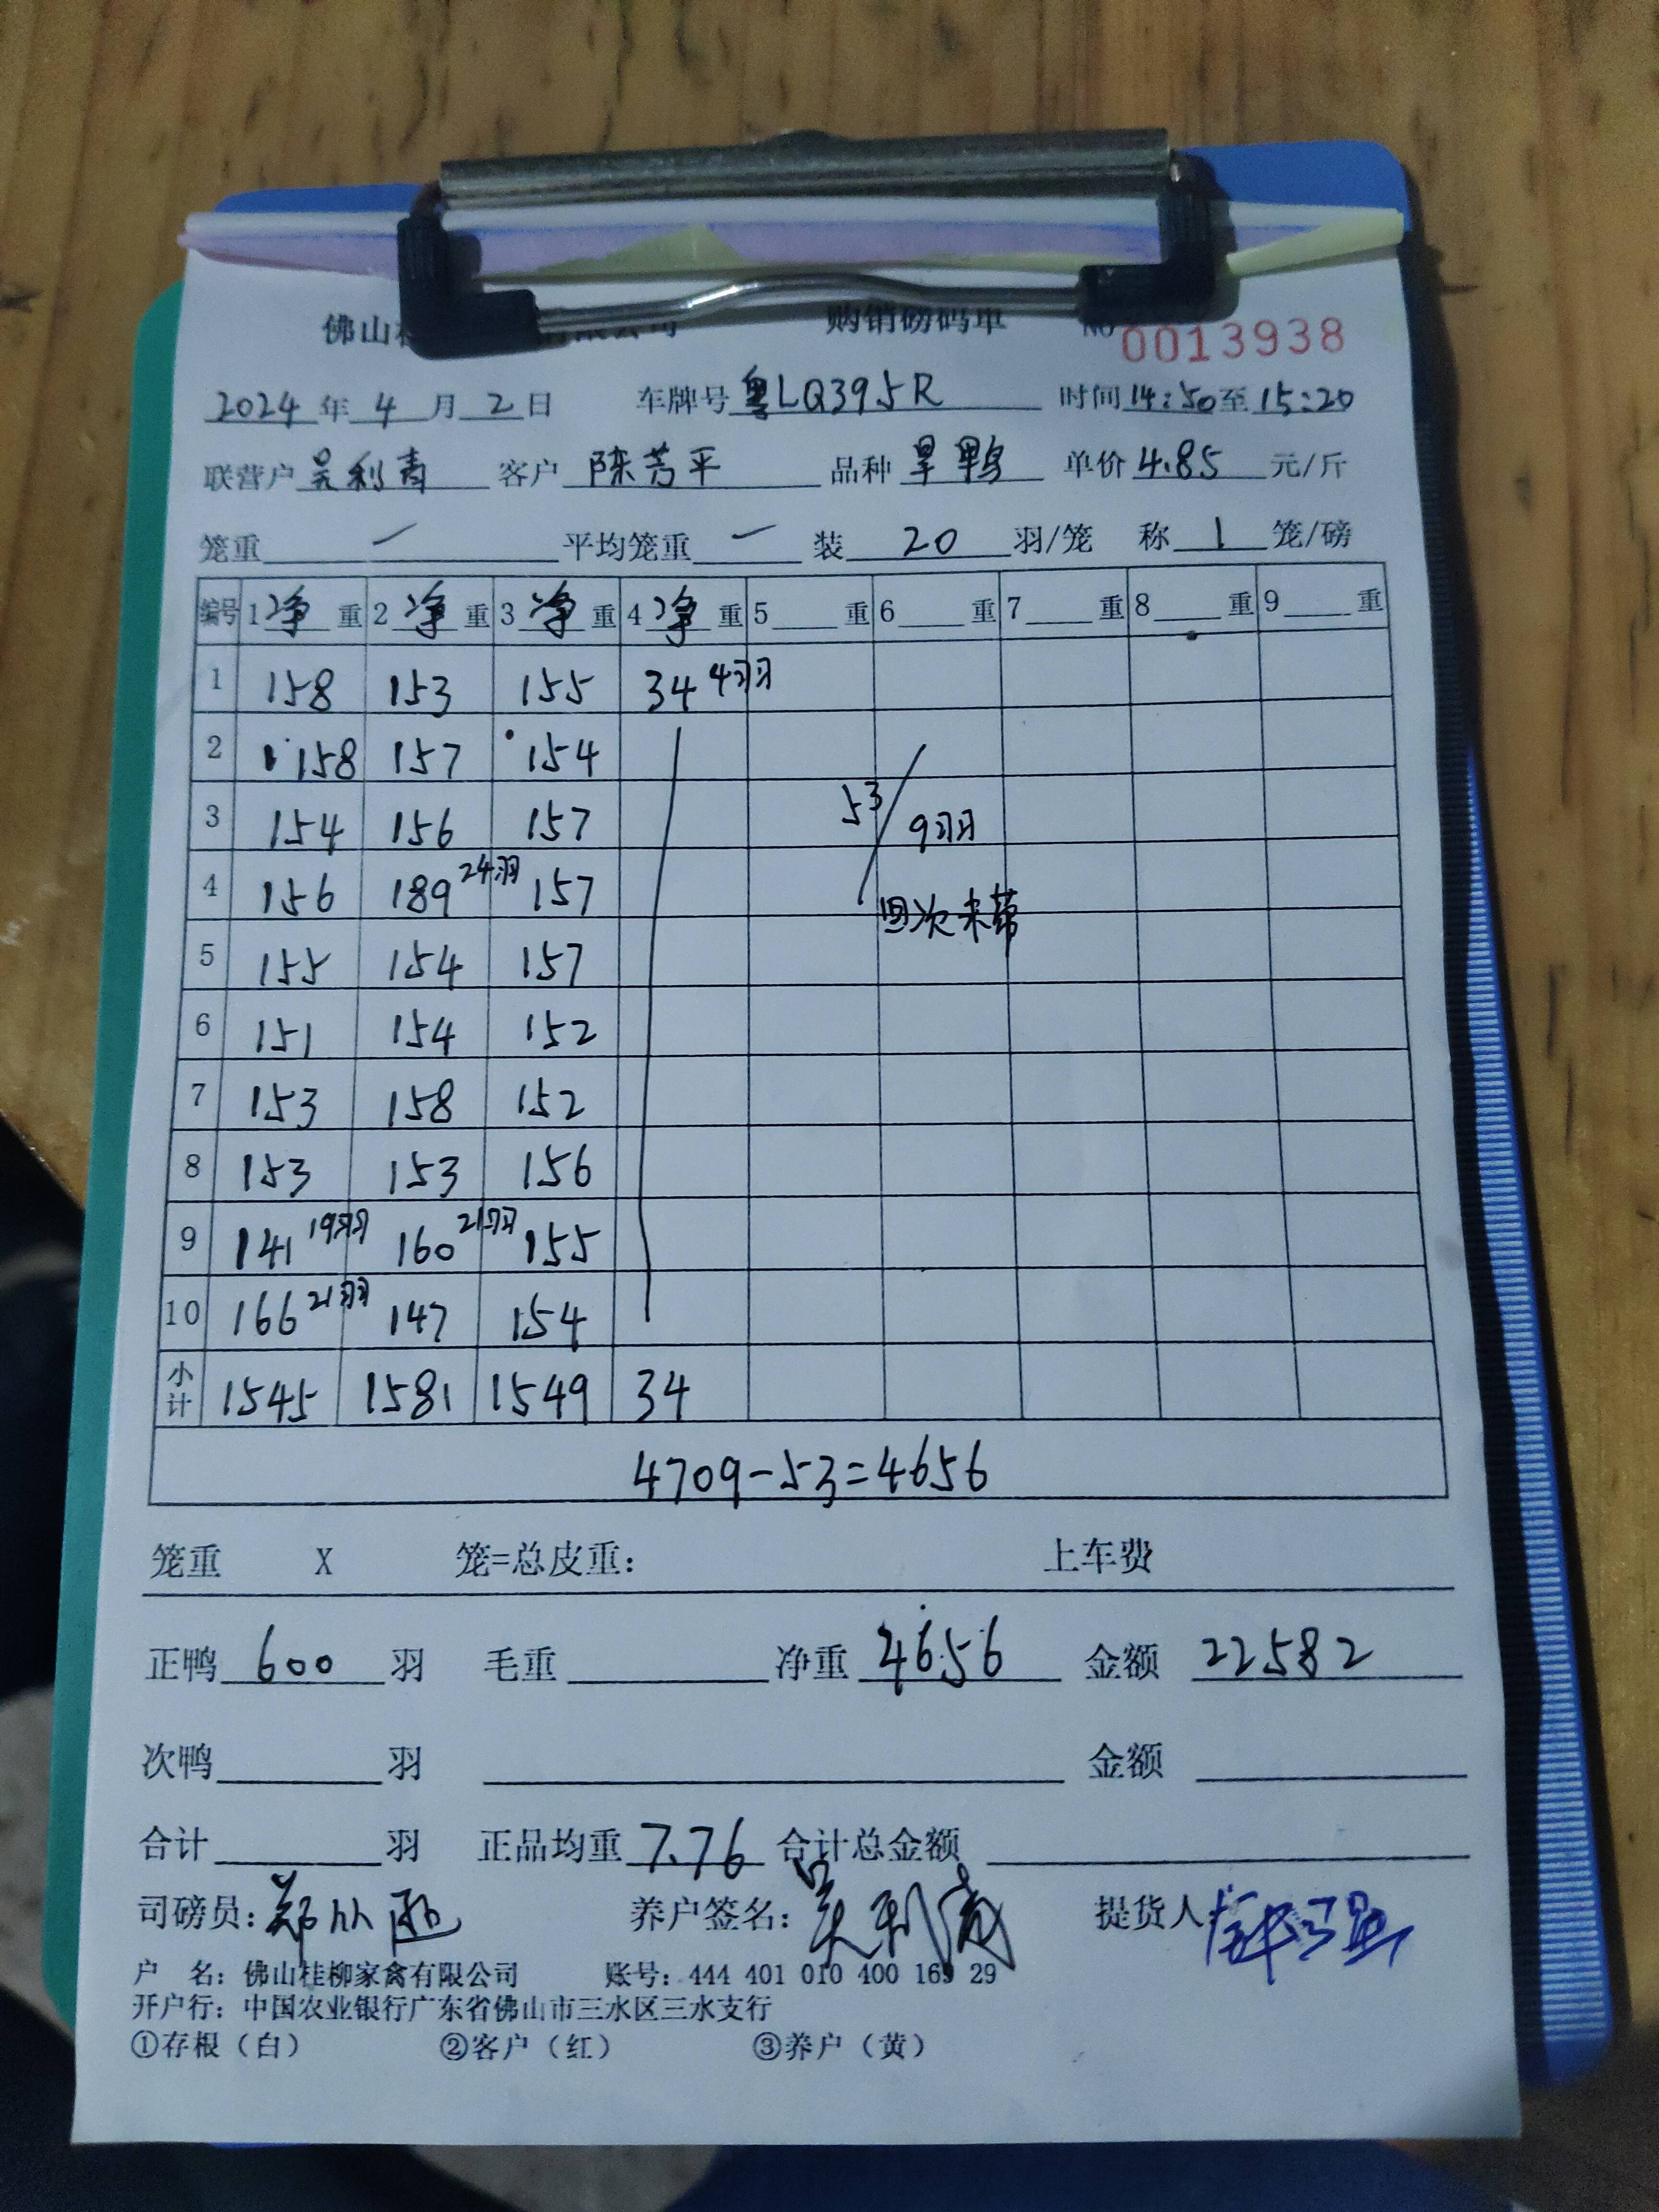 佛山 有限公司 购销磅码单 No 0013938
2024 年 4 月 2 日 车牌号 粤LQ395R 时间 14:50 至 15:20
联营户 吴利青 客户 陈芳平 品种 旱鸭 单价 4.85 元/斤
笼重 一 平均笼重 一 装 20 羽/笼 称 1 笼/磅
编号 1 净 重 2 净 重 3 净 重 4 净 重 5 重 6 重 7 重 8 重 9 重
1 158 153 155 34 4羽
2 158 157 154
3 154 156 157 53 9羽
4 156 189 24羽 157 次未带
5 155 154 157
6 151 154 152
7 153 158 152
8 153 153 156
9 141 19羽 160 21羽 155
10 166 21羽 147 154
小计 1545 1581 1549 34
4709-53=4656
笼重 X 笼=总皮重: 上车费
正鸭 600 羽 毛重 净重 4656 金额 22582
次鸭 羽 金额
合计 羽 正品均重 7.76 合计总金额
司磅员: 养户签名: 吴利青 提货人:
户 名: 佛山桂柳家禽有限公司 账号: 444 401 010 400 169 29
开户行: 中国农业银行广东省佛山市三水区三水支行
①存根（白） ②客户（红） ③养户（黄）